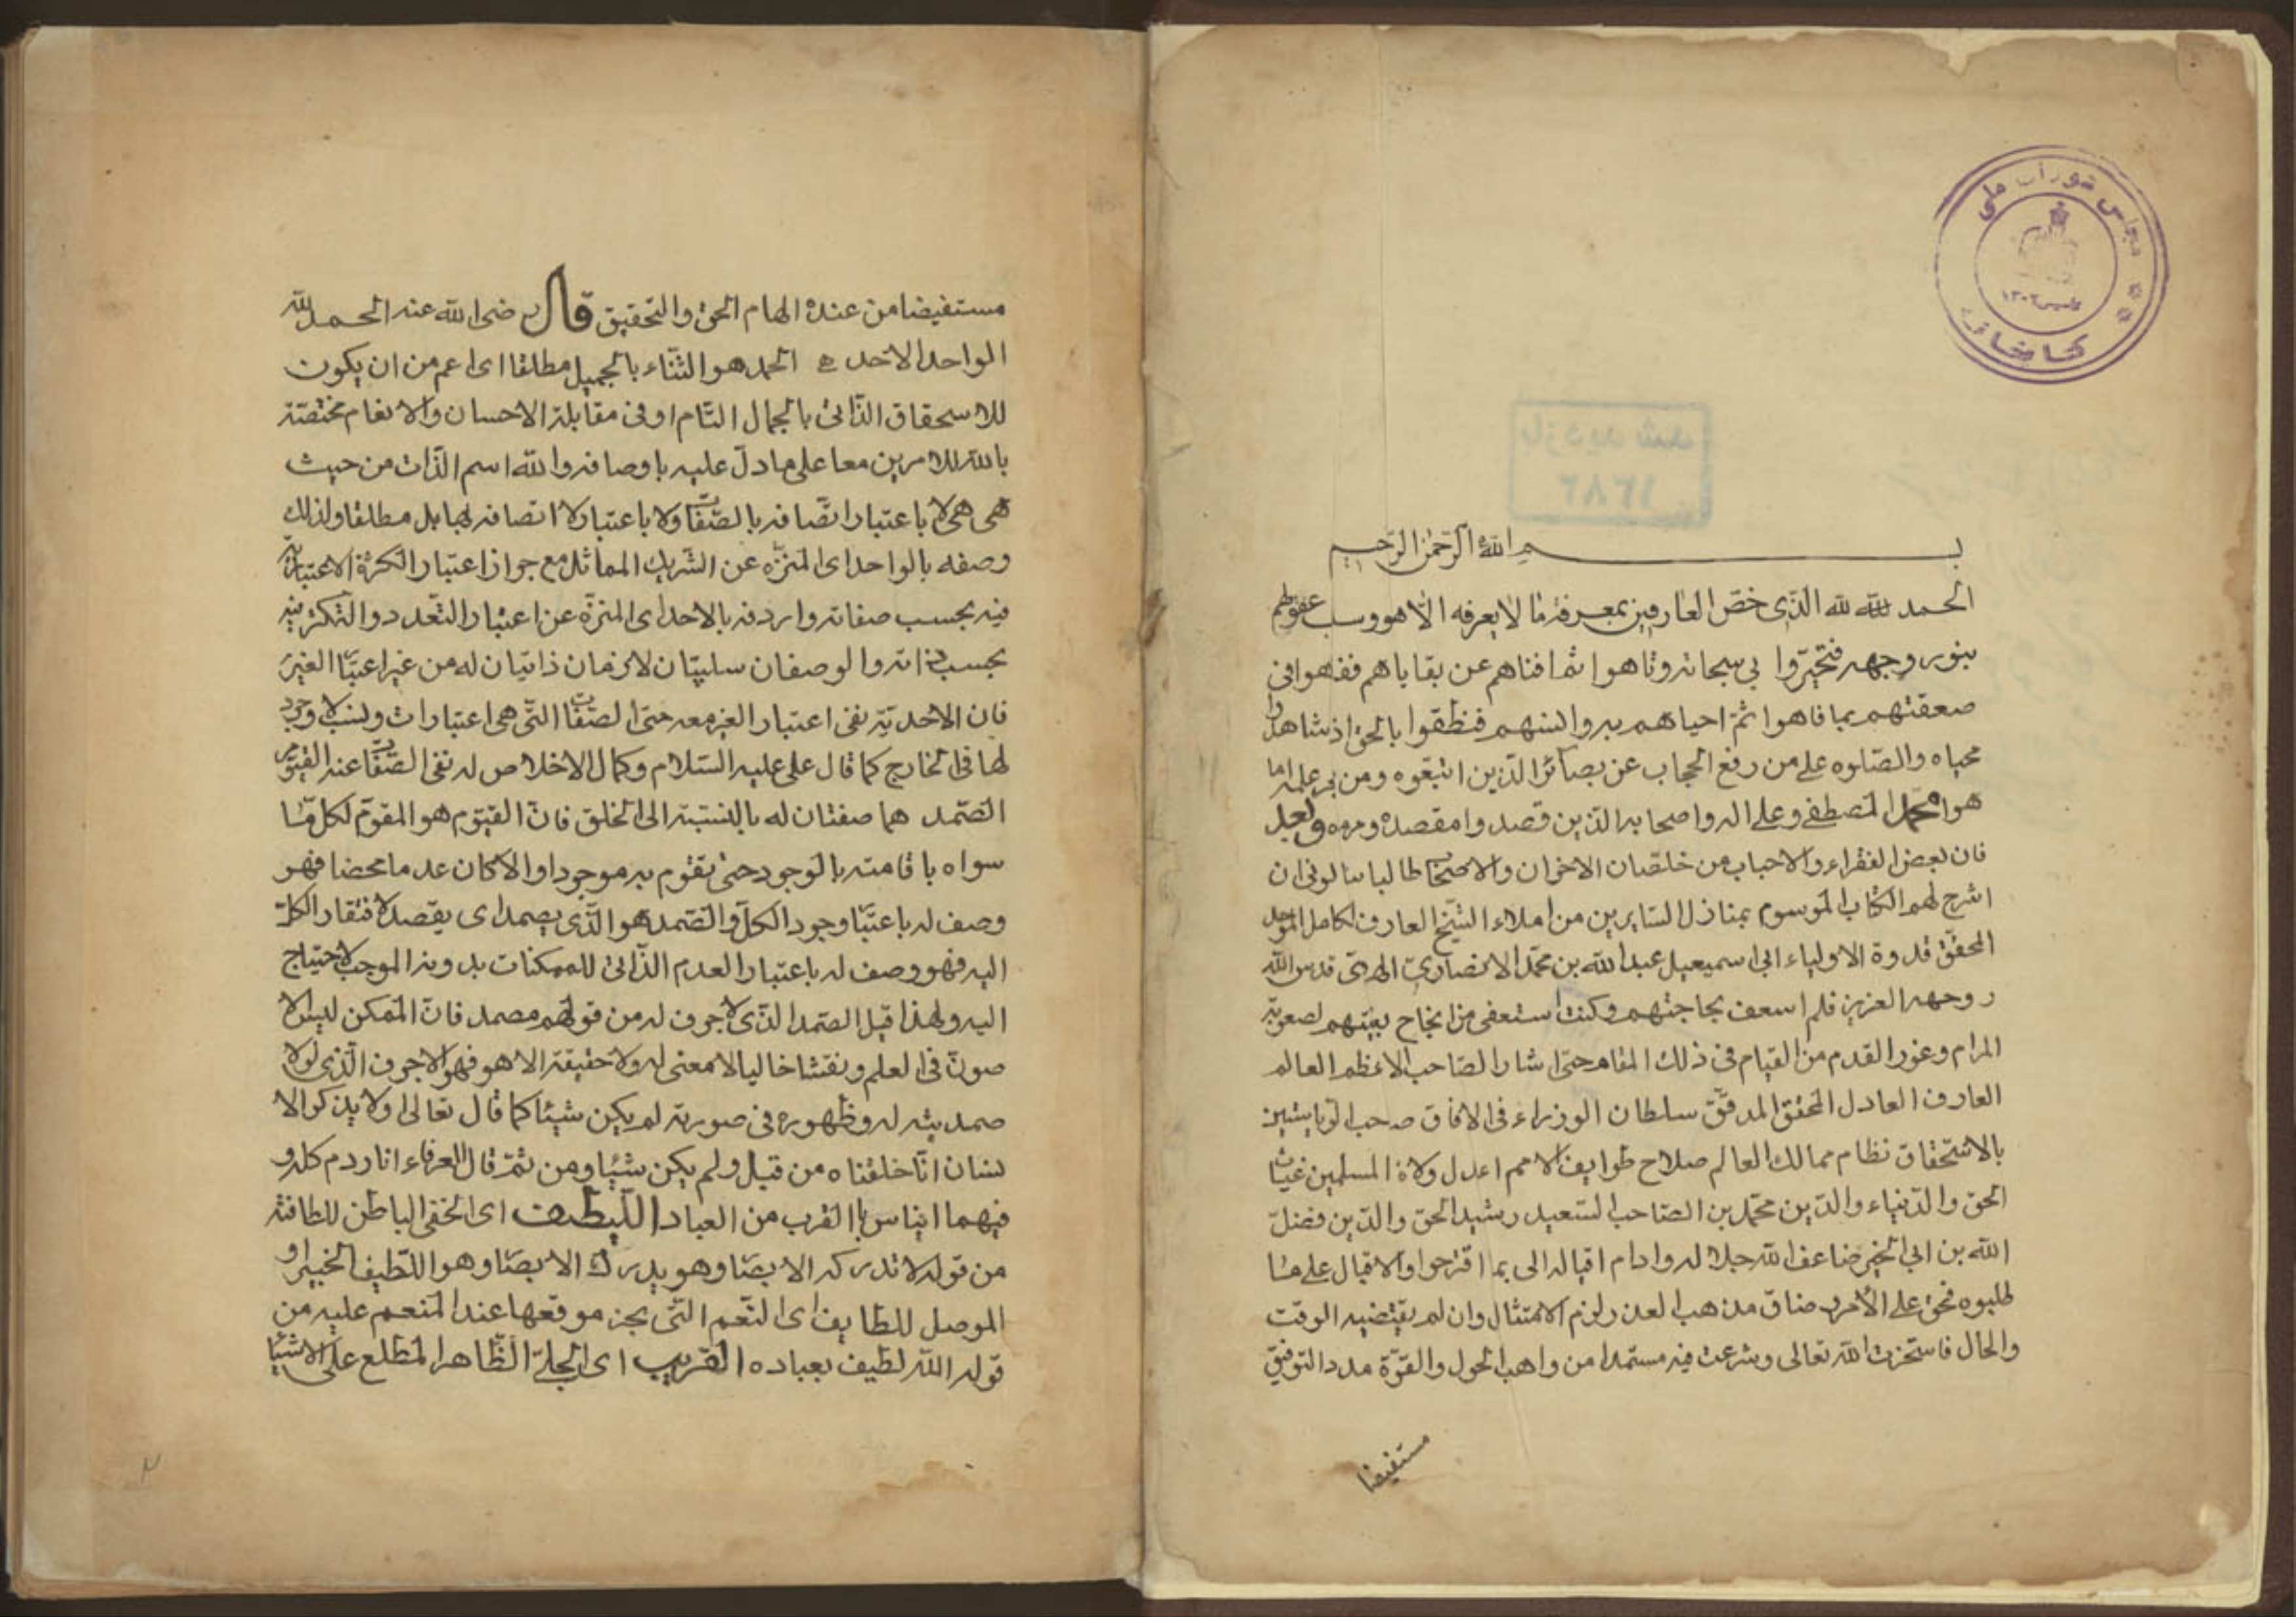 مجلس شورای ملی
کتابخانه
بازدید شد
۱۳۸۲
بسم الله الرحمن الرحیم
الحمد لله لله الذی خص العارفین بمعرفة ما لا یعرفه الا هو وسب عقولهم
بنور وجهه فتحیروا فی سبحاته وتاهوا ثم افناهم عن بقایاهم ففهوا فی
صعقتهم بما فاهوا ثم احیاهم به والسنهم فنطقوا بالحق اذ شاهدوا
محیاه والصلوه علی من رفع الحجاب عن بصائر الذین اتبعوه ومن
هو محمد المصطفی وعلی اله واصحابه الذین قصدوا مقصده وبعد
فان بعض الفقراء والاحباب من خلصان الاخوان والاصحاب طالبا سالونی ان
اشرح لهم الکتاب الموسوم بمنازل السایرین من املاء الشیخ العارف الکامل الموحد
المحقق قدوة الاولیاء ابی اسمعیل عبد الله بن محمد الانصاری الهروی قدس الله
روحه العزیز فلم اسعف بحاجتهم وکنت استعفی من انجاح بغیتهم لصعوبة
المرام وعور القدم من القیام فی ذلک المقام حتی اشار الصاحب الاعظم العالم
العارف العادل المحقق المدقق سلطان الوزراء فی الافاق صاحب
بالاستحقاق نظام ممالک العالم صلاح طوایف الامم اعدل ولاة المسلمین غیاث
الحق والدنیاء والدین محمد بن الصاحب السعید رشید الحق والدین فضل
الله بن ابی الخیر ضاعف الله جلاله وادام اقباله الی بما اقترحوا والاقبال علی ما
طلبوه فحق علی الامر وضاق مذهب العذر ولزم الامتثال وان لم یقتضیه الوقت
والحال فاستخرت الله تعالی وشرعت فیه مستمدا من واهب الحول والقوة مدد التوفیق
مستفیضا
مستفیضا من عنده الهام الحق والتحقیق قال رضی الله عنه الحمد لله
الواحد الاحد الحمد هو الثناء بالجمیل مطلقا ای اعم من ان یکون
للاسحقاق الذاتی بالجمال التام او فی مقابلة الاحسان والانعام مختصة
بالله للامرین معا علی ما دل علیه باوصافه والله اسم الذات من حیث
هی هی لا باعتبار اتصافه بالصفات ولا باعتبار لا اتصافه بها بل مطلقا ولذلک
وصفه بالواحد ای المنزه عن الشریک المماثل مع جواز اعتبار الکثرة الاعتباریة
فیه بحسب صفاته واردفه بالاحد ای المنزه عن اعتبار التعدد والتکثر فیه
بحسب ذاته والوصفان سلبیان لازمان ذاتیان له من غیر اعتبار الغیر
فان الاحدیة نفی اعتبار الغیر معه حتی الصفات التی هی اعتبارات ونسب لا وجود
لها فی الخارج کما قال علی علیه السلام وکمال الاخلاص له نفی الصفات عنه القیوم
الصمد هما صفتان له بالنسبة الی الخلق فان القیوم هو المقوم لکل ما
سواه باقامته بالوجود حتی تقوم به موجودا والا کان عدما محضا فهو
وصف له باعتبار وجود الکل والصمد هو الذی یصمد ای یقصد لافتقار الکل
الیه فهو وصف له باعتبار العدم الذاتی للممکنات بدونه الموجب لاحتیاج
الیه ولهذا قیل الصمد الذی لا جوف له من قولهم مصمد فان الممکن لیس الا
صورة فی العلم ونقشا خالیا لا معنی له ولا حقیقة الا هو فهو الاجوف الذی لولا
صمدیته له وظهوره فی صورته لم یکن شیئا کما قال تعالی اولا یذکر الا
نسان انا خلقناه من قبل ولم یکن شیئا ومن ثم قال العرفاء
فیهما ایناس بالقرب من العباد اللطیف ای الخفی الباطن للطافته
من قوله لا تدرکه الابصار وهو یدرک الابصار وهو اللطیف الخبیر او
الموصل للطایف ای النعم التی موقعها عند المنعم علیه من
قوله الله لطیف بعباده القریب ای الجلی الظاهر المطلع علی الاشیاء